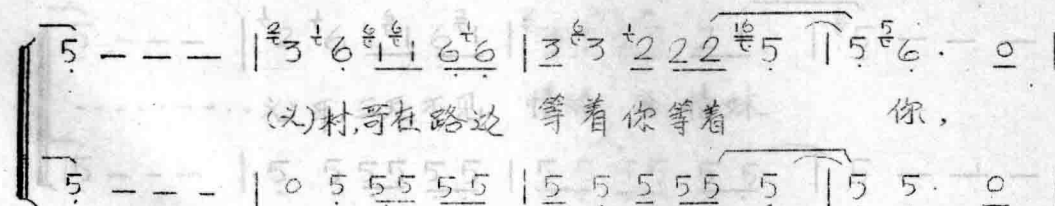 5 — — — | 3 6 1 1 6 6 | 3 3 2 2 2 5 | 5 6 · 0 |
(义)村,哥在路边 等着你等着 你,
5 — — — | 0 5 5 5 5 5 | 5 5 5 5 5 5 | 5 5 · 0